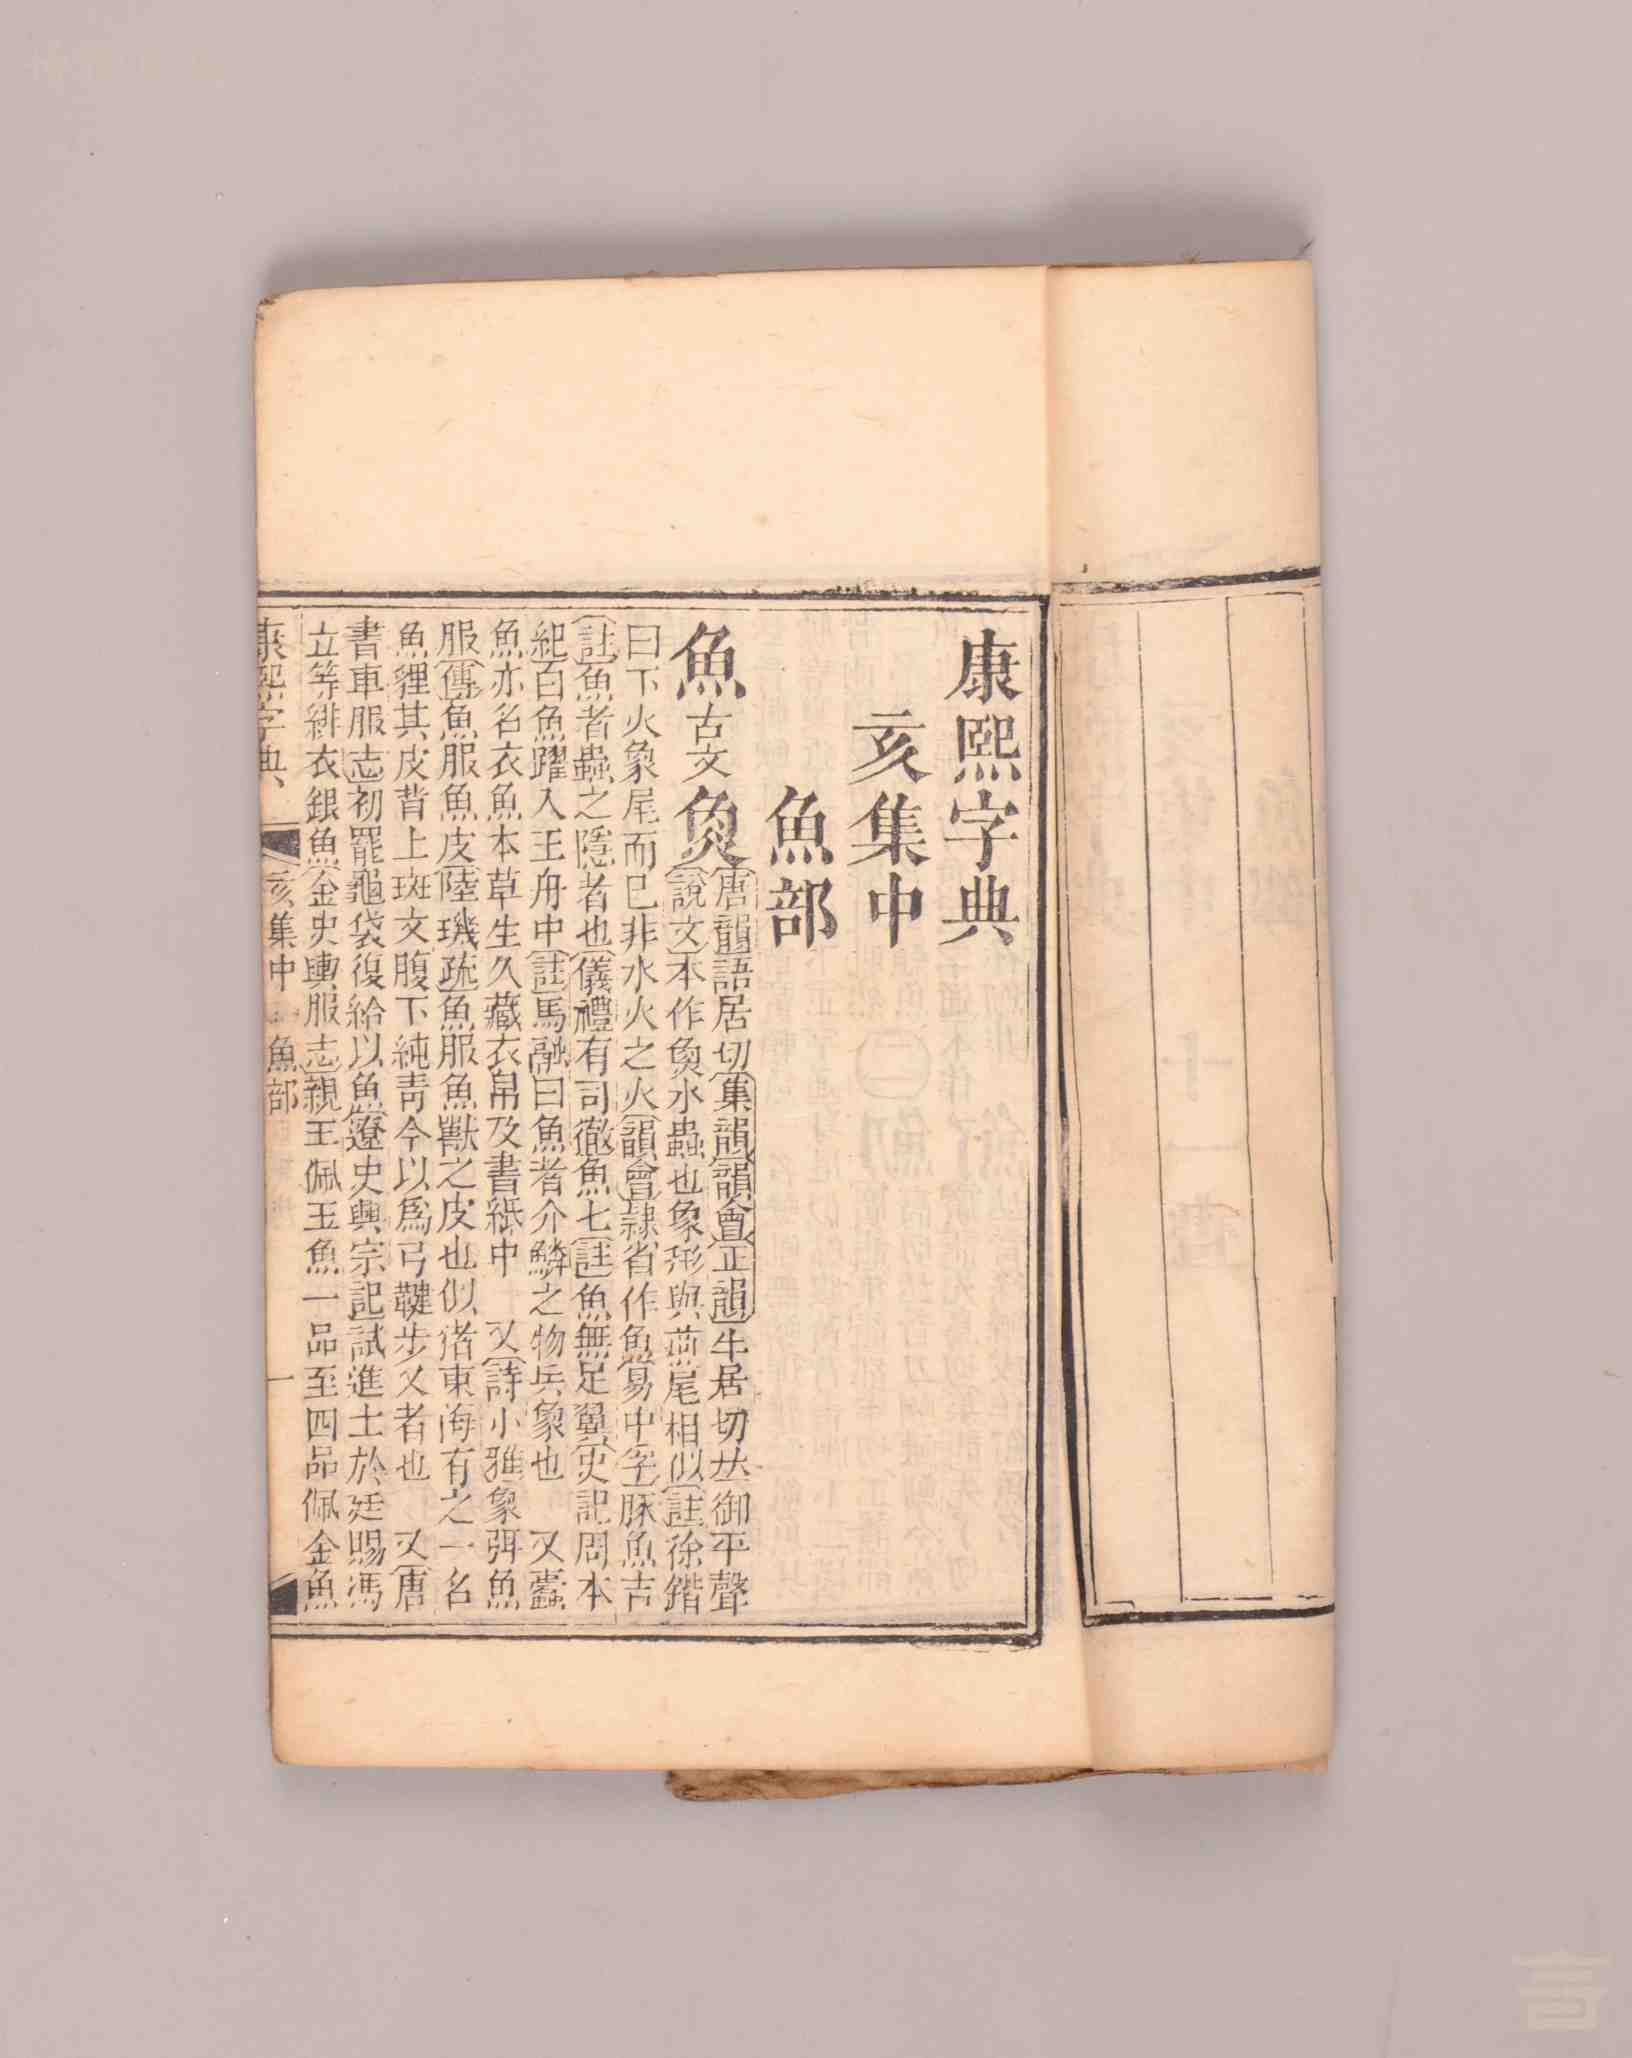 康熙字典
亥集中
魚部
魚古文𤋳唐韻語居切集韻韻會正韻牛居切𠀤御平聲
說文本作𤋳水蟲也象形與燕尾相似註徐鍇
曰下火象尾而已非水火之火韻會隷省作魚易中孚豚魚吉
註魚者蟲之隱者也儀禮有司徹魚七註魚無足翼史記周本
紀白魚躍入王舟中註馬融曰魚者介鱗之物兵象也 又蠹
魚亦名衣魚本草生久藏衣帛及書紙中 又詩小雅象弭魚
服傳魚服魚皮陸璣疏魚服魚獸之皮也似猪東海有之一名
魚貍其皮背上斑文腹下純靑今以爲弓鞬步叉者也 又唐
書車服志初罷龜袋復給以魚遼史興宗記試進士於廷賜馮
立等緋衣銀魚金史輿服志親王佩玉魚一品至四品佩金魚
康熙字典 亥集中 魚部 一